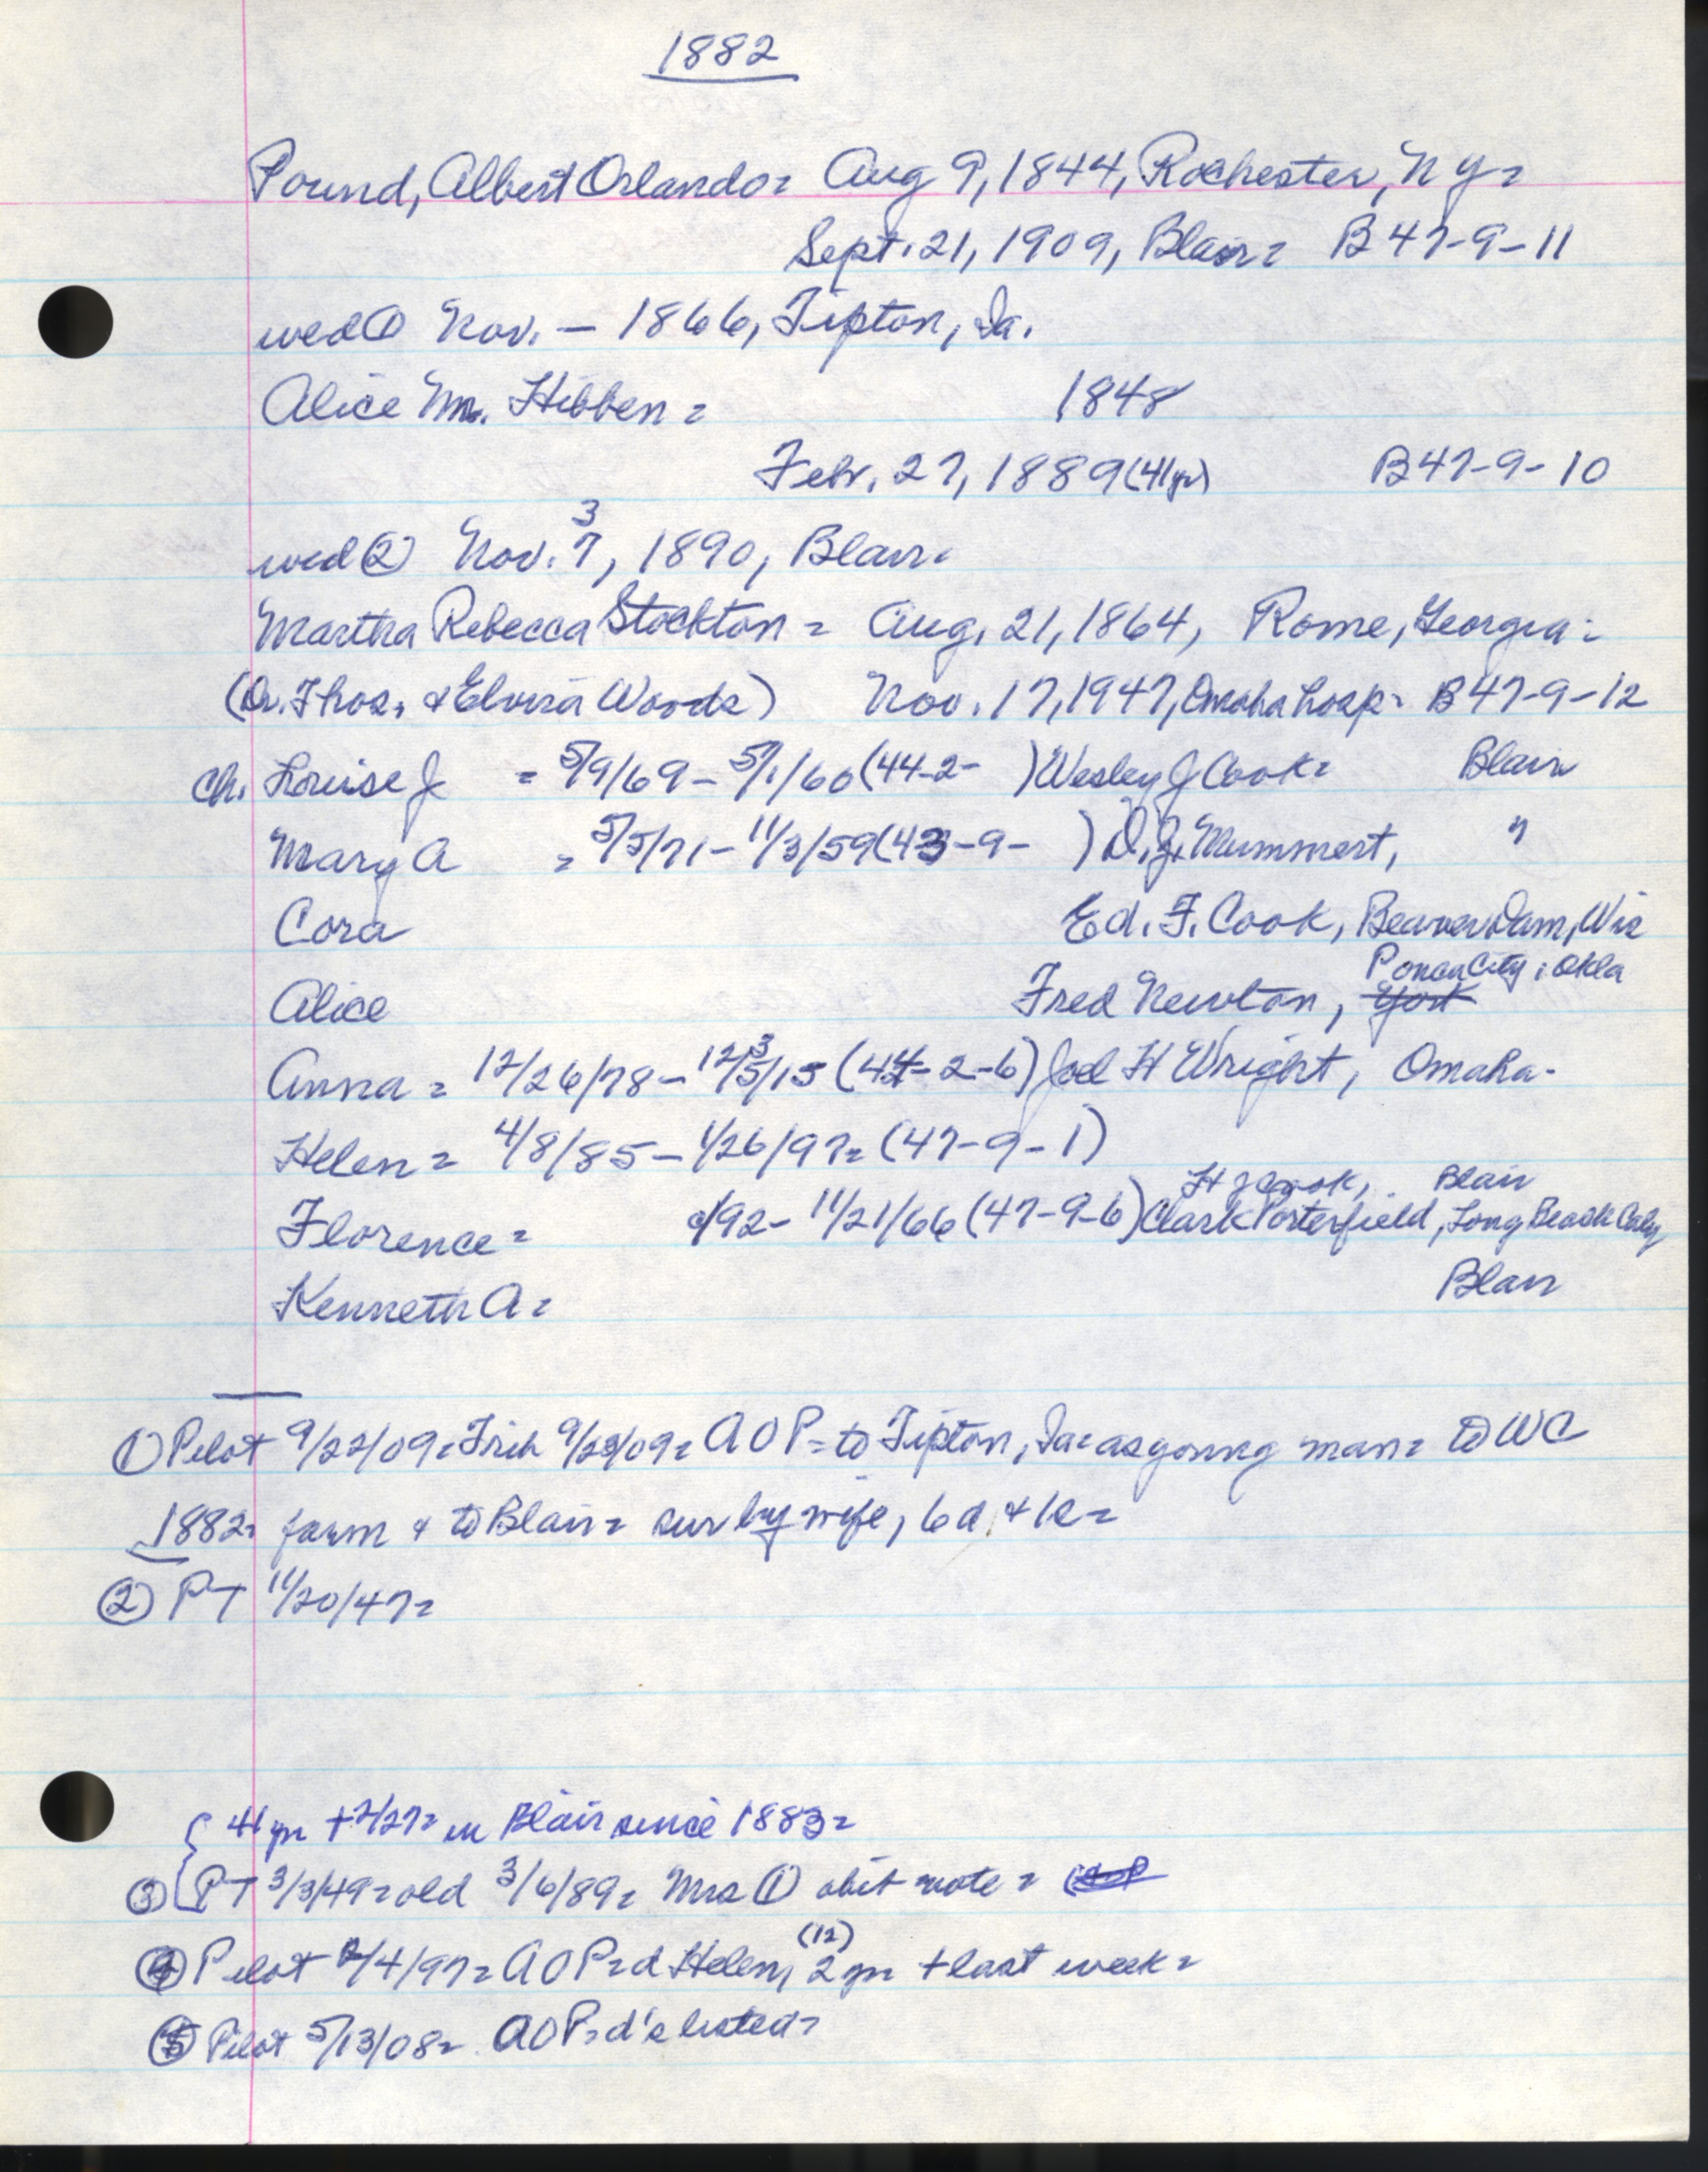 1882
Pound, Albert Orlando = Aug 9, 1844, Rochester, N Y =
Sept. 21, 1909, Blair = B 47-9-11
wed ① Nov. — 1866, Tipton, Ia.
Alice M. Hibben = 1848
Febr. 27, 1889 (41yr) B 47-9-10
3
wed ② Nov. 7, 1890, Blair.
Martha Rebecca Stockton = Aug. 21, 1864, Rome, Georgia =
(Dr. Thos. & Elvira Woods) Nov. 17, 1947, Omaha hosp = B 47-9-12
Ch. Louise J = 5/9/69 - 5/1/60 (44-2- ) Wesley J Cook = Blair
Mary A = 5/5/71 - 11/3/59 (43-9- ) D. J. Mummert, "
Cora Ed. F. Cook, Beaver Dam, Wis
Ponca City, Okla
Alice Fred Newton, York
3
Anna = 12/26/78 - 12/5/15 (44-2-6) Joel H Wright, Omaha -
Helen = 4/8/85 - 1/26/97 = (47-9-1)
H J Cook, Blair
Florence = /92 - 11/21/66 (47-9-6) Clark Porterfield, Long Beach Calif
Kenneth A = Blair
① Pilot 9/22/09 = Trib 9/23/09 = A O P = to Tipton, Ia = as young man = to WC
1882 = farm & to Blair = sur by wife, 6 d & K =
② PT 11/20/47 =
41 yr + 2/27 = in Blair since 1883 =
③ PT 3/3/49 = old 3/6/89 = Mrs ① obit note =
(12)
④ Pilot 2/4/97 = A O P = d Helen, 2 yr + last week =
⑤ Pilot 5/13/08 = A O P = d's listed =